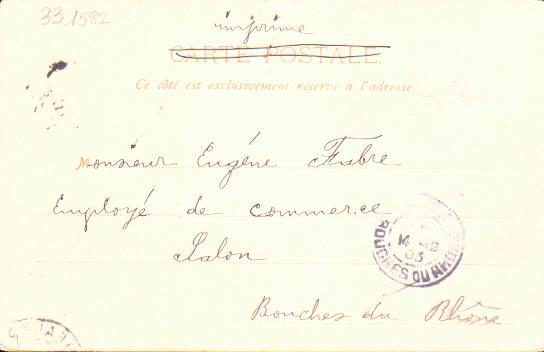 331582
imprime
CARTE POSTALE.
Ce côté est exclusivement réservé à l'adresse.
Monsieur Eugène Fabre
Employé de commerce
Salon
Bouches du Rhône
14 -12
03
BOUCHES DU RHONE